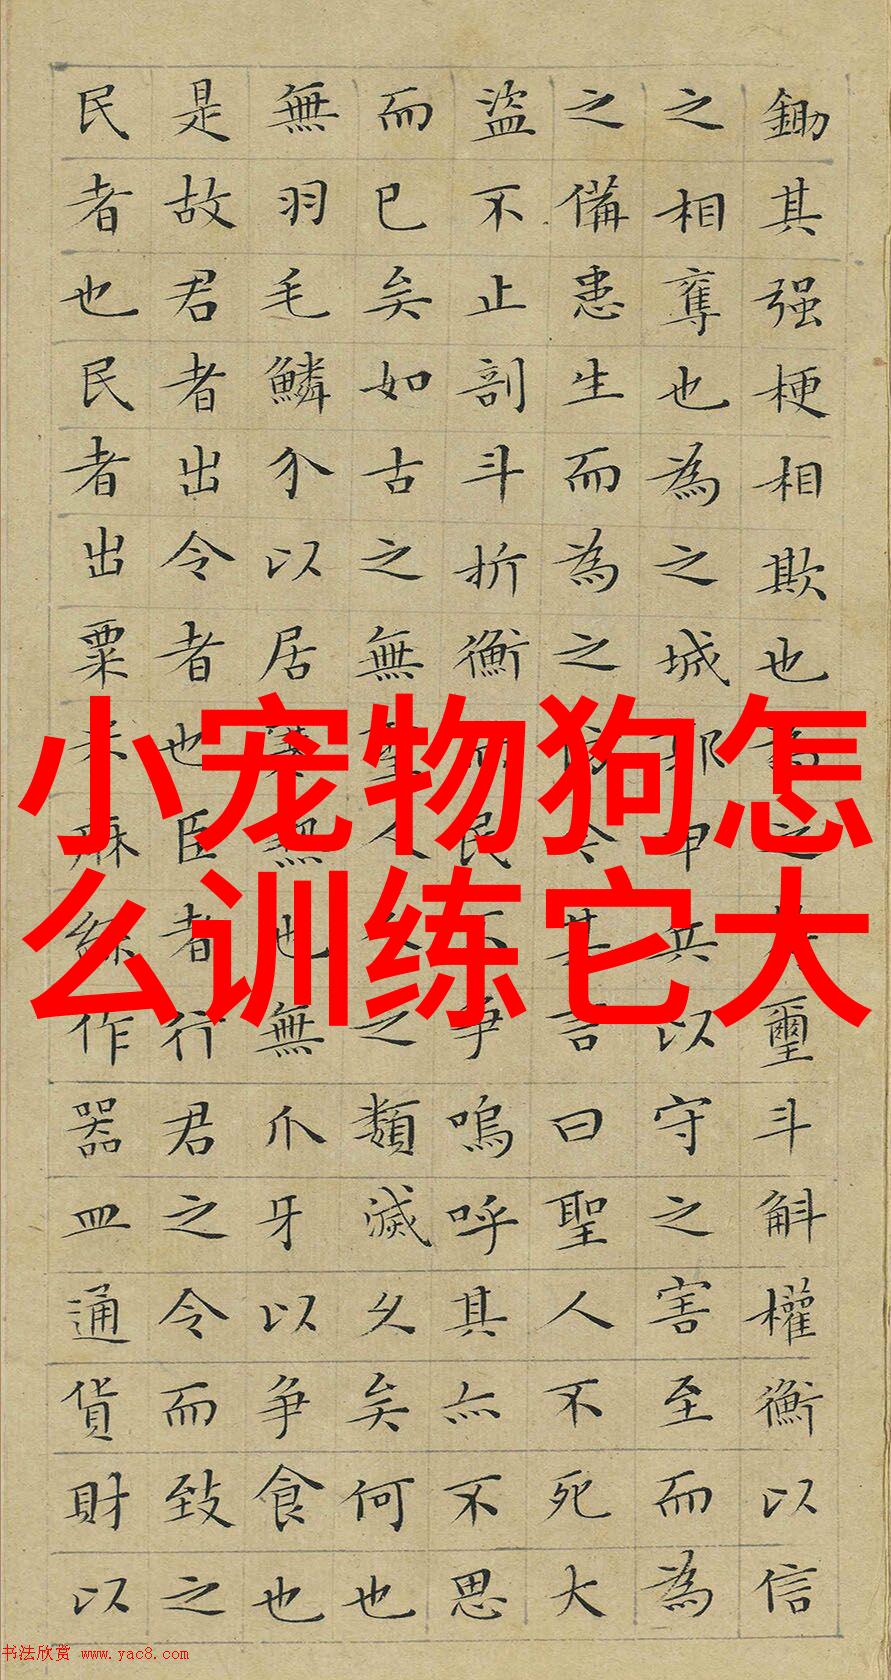 鋤其强梗相欺也為之符璽斗斛權衡以信
之相奪也為之城郭甲兵以守之害至而為
之備患生而為之防今其言曰聖人不死大
盜不止剖斗折衡而民不爭嗚呼其亦不思
而已矣如古之無聖人人之類滅久矣何也
無羽毛鱗介以居寒熱也無爪牙以爭食也
是故君者出令者也臣者行君之令而致之
民者也民者出粟米麻絲作器皿通貨財以
小宠物狗怎
么训练它大
书法欣赏 www.yac8.com